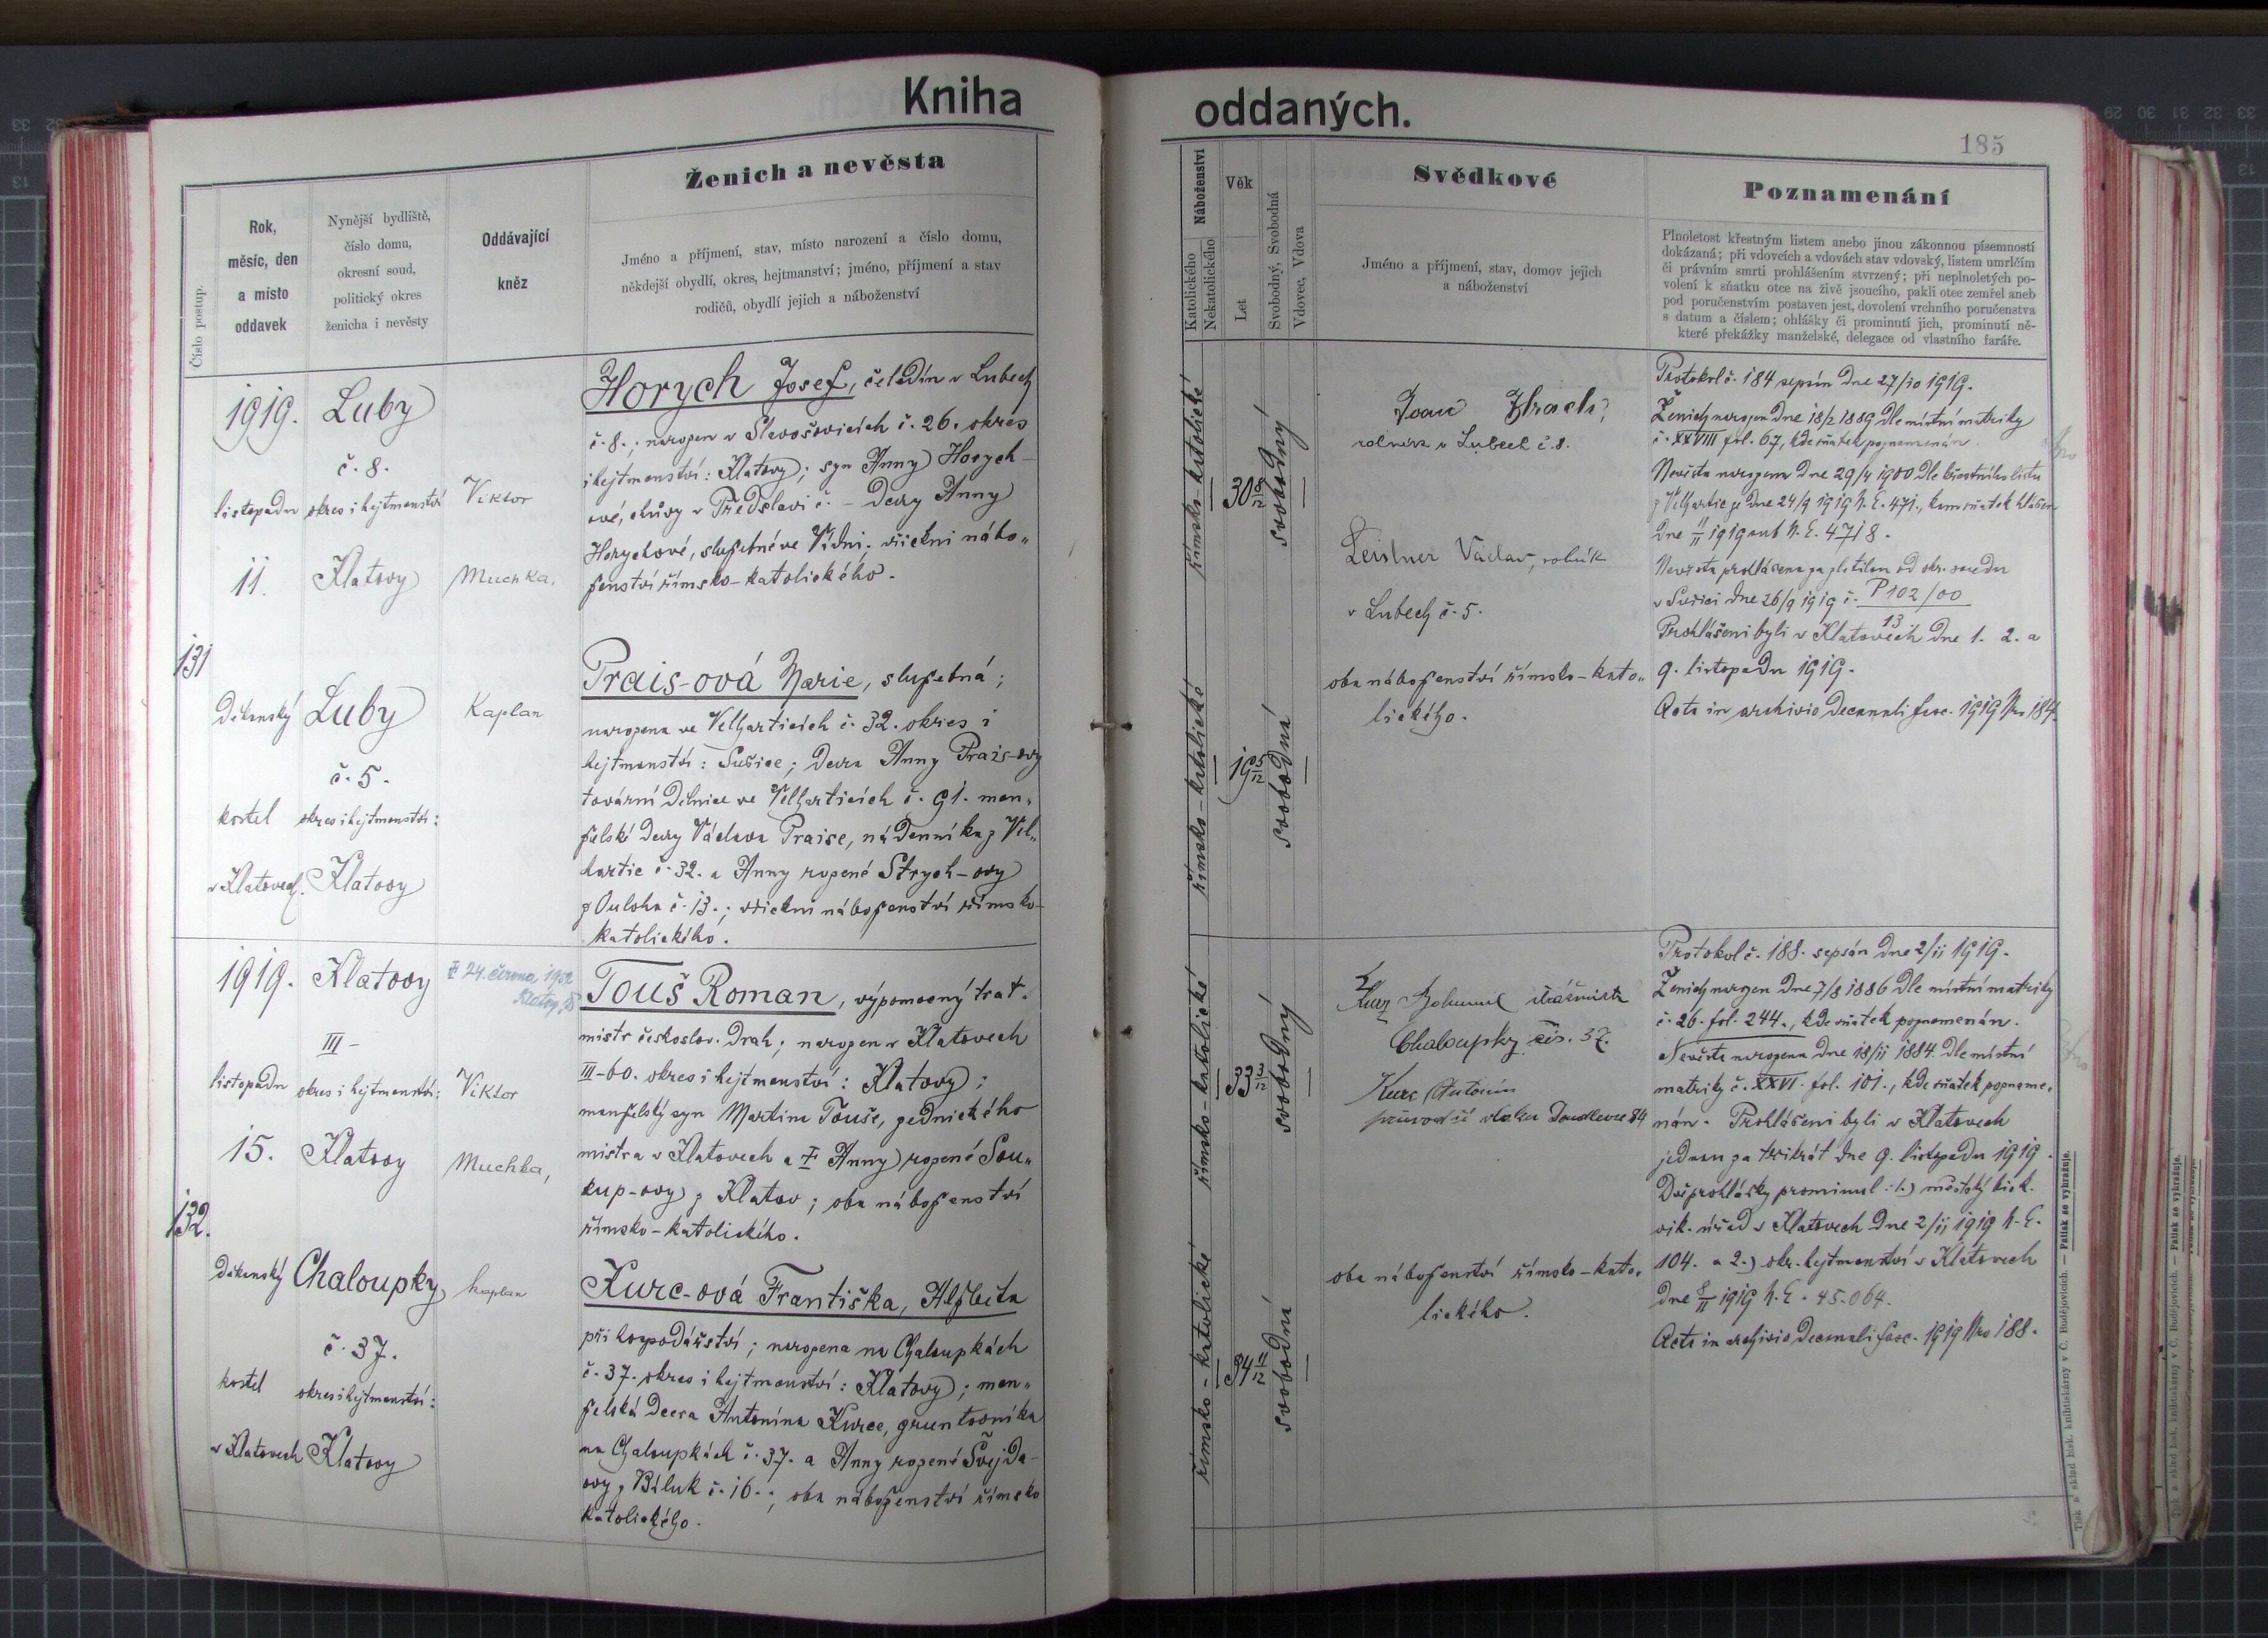 Kniha oddaných.
185
Číslo postup.
Rok,
měsíc, den
a místo
oddavek
Nynější bydliště,
číslo domu,
okresní soud,
politický okres
ženicha i nevěsty
Oddávající
kněz
Ženich a nevěsta
Jméno a příjmení, stav, místo narození a číslo domu,
někdejší obydlí, okres, hejtmanství; jméno, příjmení a stav
rodičů, obydlí jejich a náboženství
Náboženství
Katolického
Nekatolického
Věk
Let
Svobodný, Svobodná
Vdovec, Vdova
Svědkové
Jméno a příjmení, stav, domov jejich
a náboženství
Poznamenání
Plnoletost křestným listem anebo jinou zákonnou písemností
dokázaná; při vdovcích a vdovách stav vdovský, listem umrlčím
či právním smrti prohlášením stvrzený; při neplnoletých po-
volení k sňatku otce na živě jsoucího, pakli otec zemřel aneb
pod poručenstvím postaven jest, dovolení vrchního poručenstva
s datum a číslem; ohlášky či prominutí jich, prominutí ně-
které překážky manželské, delegace od vlastního faráře.
131
1919.
listopadu
11.
Děkanský
kostel
v Klatovech.
Luby
č. 8.
okres i hejtmanství
Klatovy
Luby
č. 5.
okres i hejtmanství:
Klatovy
Viktor
Muchka,
Kaplan
Horych Josef, čeledín v Lubech
č. 8.; narozen v Slavošovicích č. 26. okres
i hejtmanství: Klatovy; syn Anny Horych-
ové, chůvy v Předslavi č. - dcery Anny
Horychové, služebné ve Vídni. všickni nábo„
ženství římsko-katolického.
Prais-ová Marie, služebná;
narozena ve Velharticích č. 32. okres i
hejtmanství: Sušice; dcera Anny Prais-ovy
tovární dělnice ve Velharticích č. 91. man„
želské dcery Václava Praise, nádenníka z Vel„
hartic č. 32. a Anny rozené Strych-ovy
z Ouloha č. 13.; všickni náboženství římsko-
katolického.
římsko-katolické
30 8/12
svobodný
římsko-katolické
19 5/12
svobodná
rolník v Lubech č. 8.
Leistner Václav, rolník
v Lubech č. 5.
oba náboženství římsko-kato„
lického.
Protokol č. 184 sepsán dne 27/10 1919.
Ženich narozen dne 18/2 1889 dle místní matriky
č. XXVIII fol. 67, kde sňatek poznamenán.
Nevěsta narozena dne 29/5 1900 dle křestního listu
z Velhartic ze dne 24/9 1919 N. E. 471., kam sňatek hlášen
dne 11/11 1919 sub N. E. 4718.
Nevěsta prohlášena za zletilou od okr. soudu
v Sušici dne 26/9 1919 č. P 102/00
13
Prohlášeni byli v Klatovech dne 1. 2. a
9. listopadu 1919.
Acta in archivio decanali fasc. 1919 Nro 184.
132.
1919.
listopadu
15.
Děkanský
kostel
v Klatovech
Klatovy
III -
okres i hejtmanství:
Klatovy
Chaloupky
č. 37.
okres i hejtmanství:
Klatovy
† 24. června 1952
Viktor
Muchka,
kaplan
Touš Roman, výpomocný trať.
mistr českoslov. drah; narozen v Klatovech
III-60. okres i hejtmanství: Klatovy;
manželský syn Martina Touše, zednického
mistra v Klatovech a † Anny rozené Sou„
kup-ovy z Klatov; oba náboženství
římsko-katolického.
Kurc-ová Františka, Alžběta
při hospodářství; narozena na Chaloupkách
č. 37. okres i hejtmanství: Klatovy; man„
želská dcera Antonína Kurce, gruntovníka
na Chaloupkách č. 37. a Anny rozené Švejda-
ovy z Běluk č. 16.; oba náboženství římsko
katolického.
římsko-katolické
33 3/12
svobodný
římsko-katolické
34 11/12
svobodná
Kurz Bohumil
Chaloupky čís. 37.
Kurc Antonín
průvodčí vlaku Doudlevce 84
oba náboženství římsko-kato„
lického.
Protokol č. 188. sepsán dne 2/11 1919.
Ženich narozen dne 7/8 1886 dle místní matriky
č. 26. fol. 244., kde sňatek poznamenán.
Nevěsta narozena dne 18/11 1884. dle místní
matriky č. XXVI. fol. 101., kde sňatek pozname„
nán. Prohlášeni byli v Klatovech
jednou za třikrát dne 9. listopadu 1919.
Dvě prohlášky prominul: 1.) městský bisk.
vik. úřad v Klatovech dne 2/11 1919 N. E.
104. a 2.) okr. hejtmanství v Klatovech
dne 8/11 1919 N. E. 45.064.
Acta in archivio decanali fasc. 1919 Nro 188.
Tisk a sklad bisk. knihtiskárny v Č. Budějovicích. — Patisk se vyhražuje.